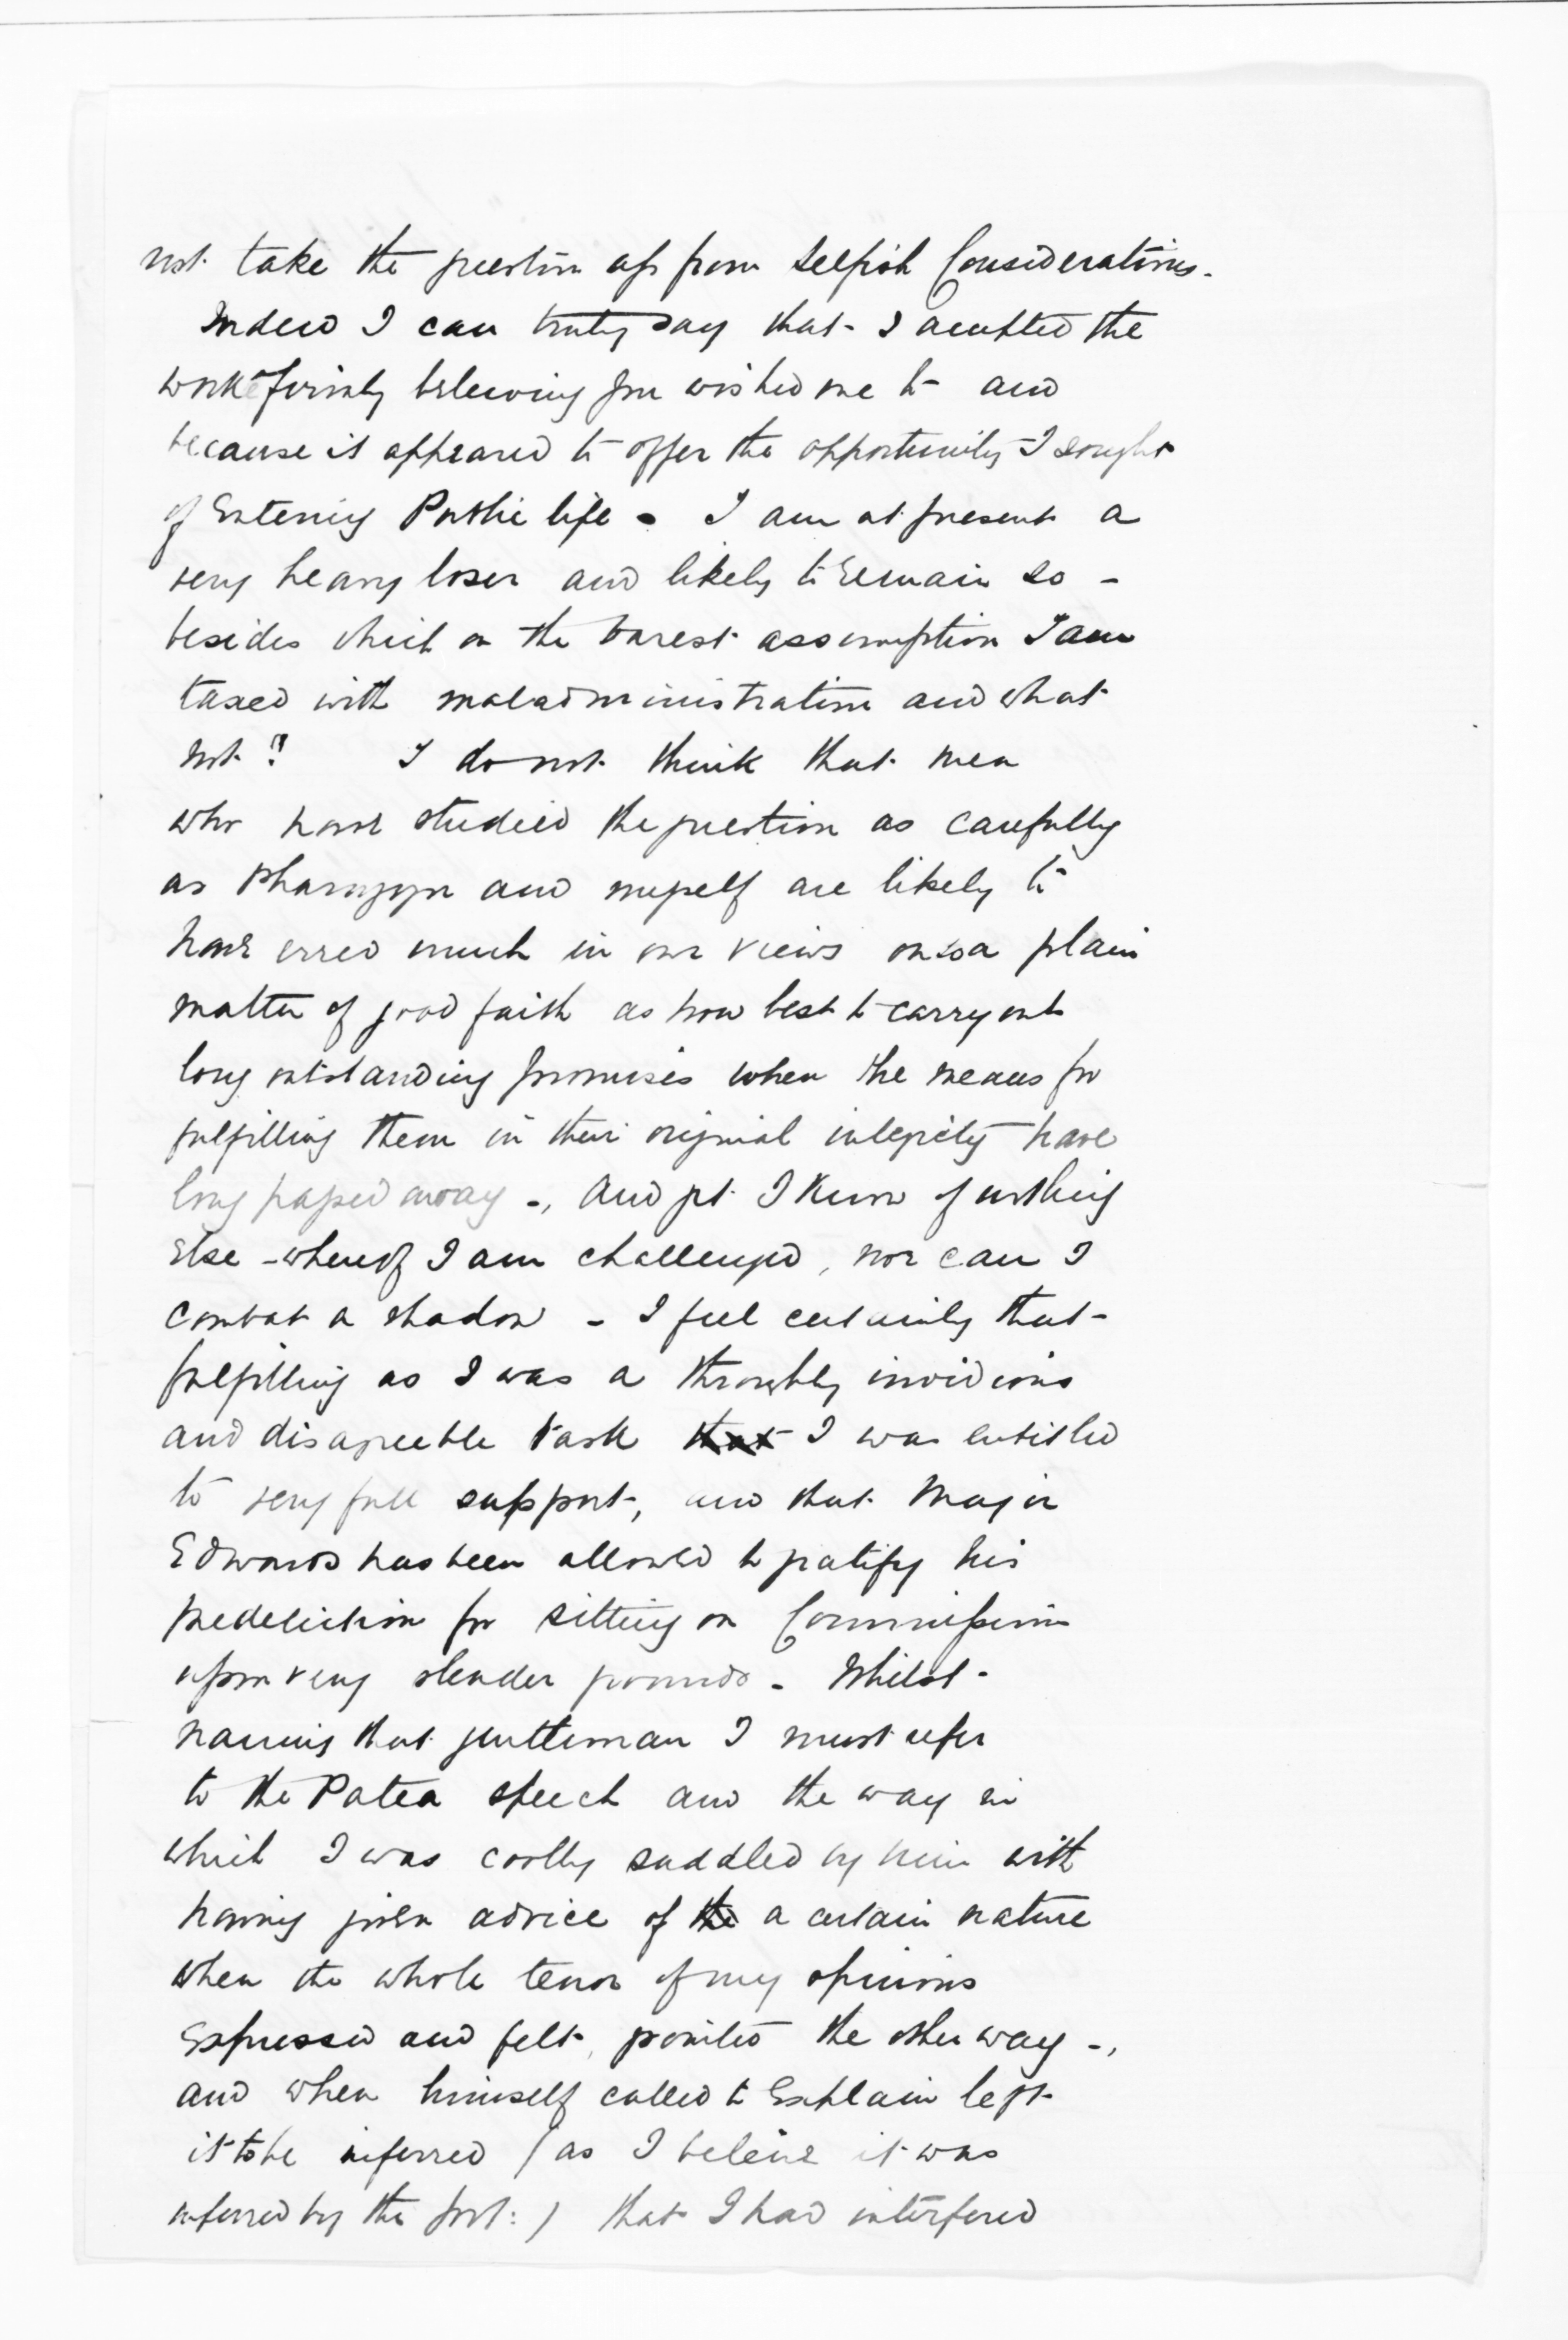 not take the question up from selfish Considerations.
Indeed I can truly say that I accepted the
work firmly believing you wished me to and
because it appeared to offer the opportunity I sought
of Entering Public life. I am at present a
very heavy loser and likely to remain so -
besides which on the barest assumption I am
taxed with maladministration and what
not? I do not think that men
who have studied the question as carefully
as and myself are likely to
have erred much in our views on so a plain
matter of good faith as how best to carry out
long outstanding promises when the means for
fulfilling them in their original integrity have
long passed away -, and yet I know of nothing
Else - whereof I am challenged, nor can I
combat a shadow - I feel certainly that -
fulfilling as I was a throughly invidious
and disagreeable task that I was entitled
to very full support, and that Major
Edwards has been allowed to gratify his
predeliction for sitting on Commissions
upon very slender grounds - Whilst -
naming that gentleman I must refer
to the Patea speech and the way in
which I was coolly saddled by him with
having given advice of the a certain nature
when the whole tenor of my opinions
Expressed and felt, pointed the other way -,
and when himself called to Explain left
it to be inferred (as I believe it was
inferred by the Govt:) that I had interfered